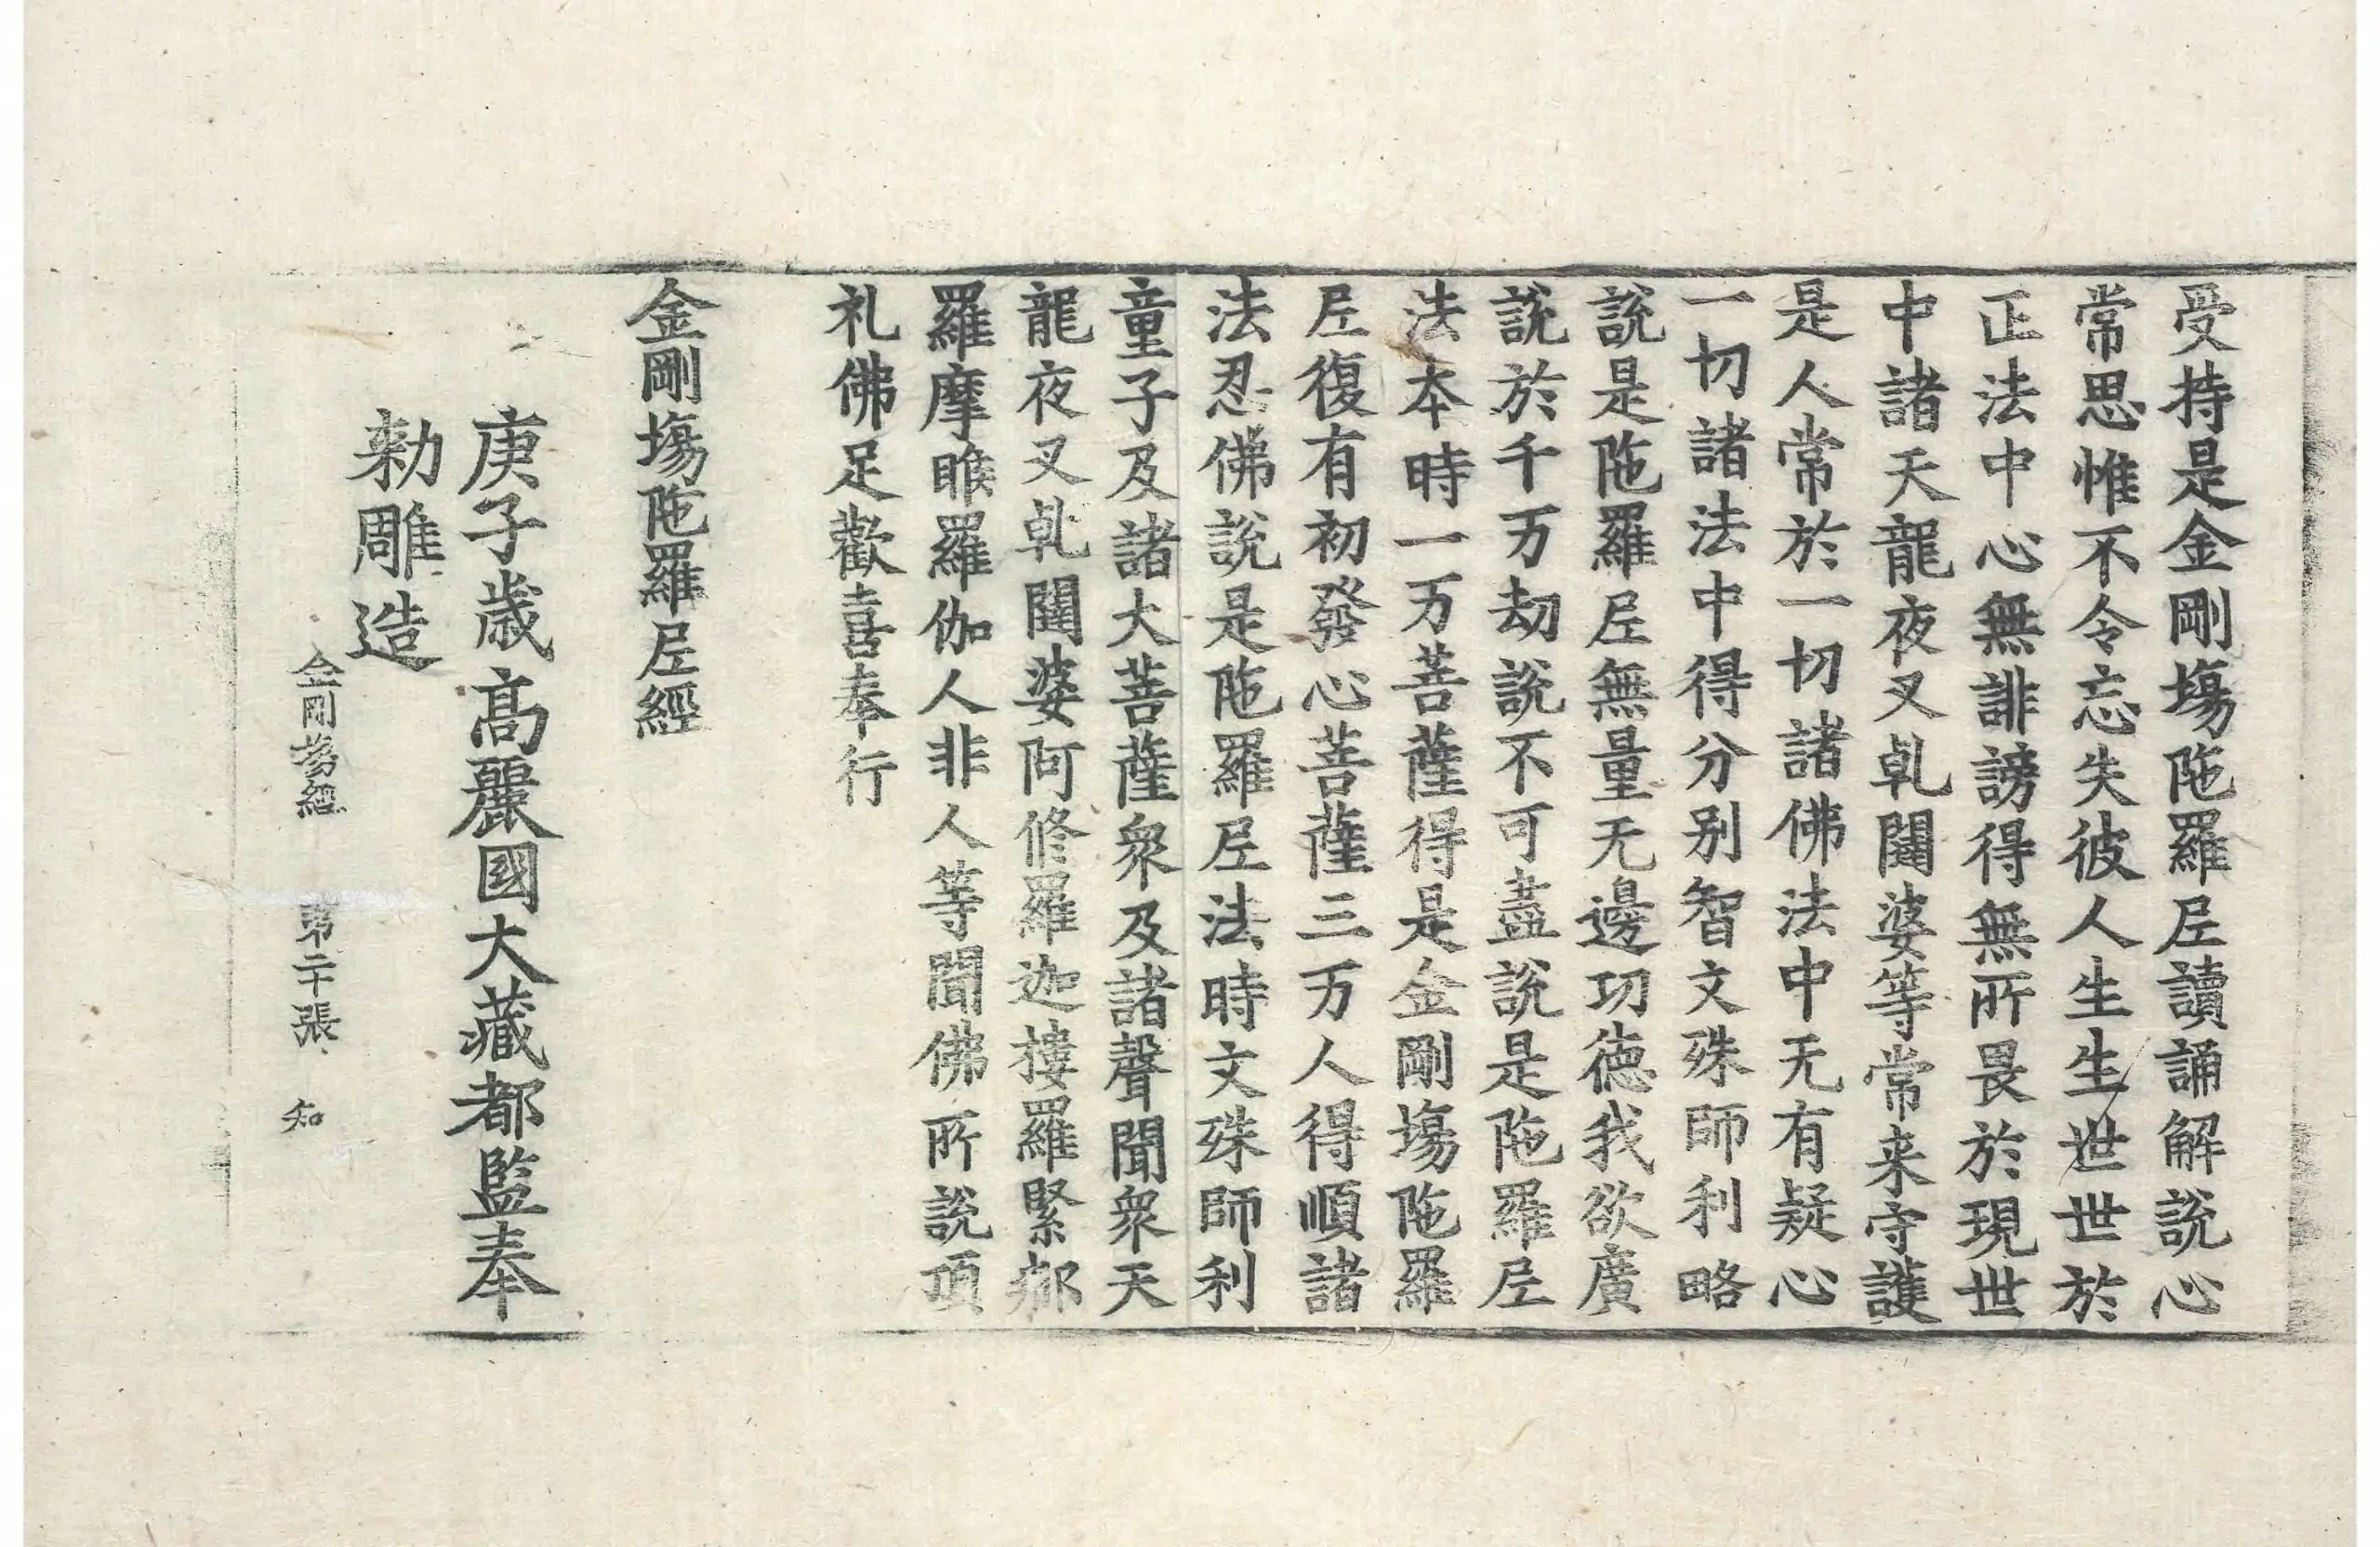 受持是金剛塲陁羅𡰱讀誦解說心
常思惟不令忘失彼人生生世世於
正法中心無誹謗得無所畏於現世
中諸天龍夜叉乹闥婆等常来守護
是人常於一切諸佛法中无有疑心
一切諸法中得分别智文殊師利略
說是陁羅𡰱無量无邊功德我欲廣
說於千万劫說不可盡說是陁羅𡰱
法本時一万菩薩得是金剛塲陁羅
𡰱復有初發心菩薩三万人得順諸
法忍佛說是陁羅𡰱法時文殊師利
童子及諸大菩薩衆及諸聲聞衆天
龍夜叉乹闥婆阿脩羅迦樓羅緊那
羅摩睺羅伽人非人等聞佛所說頂
礼佛足歡喜奉行
金剛塲陁羅𡰱經
庚子歳髙麗國大藏都監奉
勑雕造
金剛塲經 第二十張 知